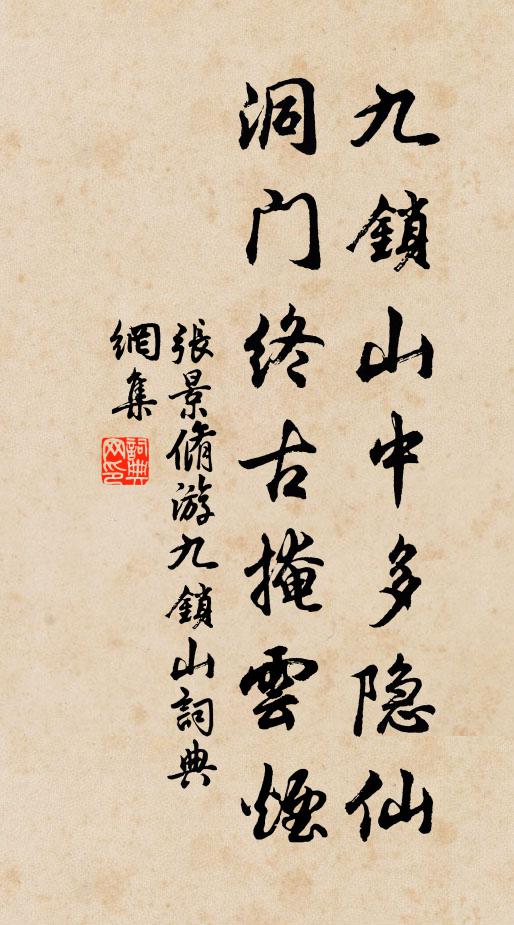 九鎖山中多隐仙
洞门终古掩雲煙
張景脩游九鎖山詞典
網集
詞典
网印